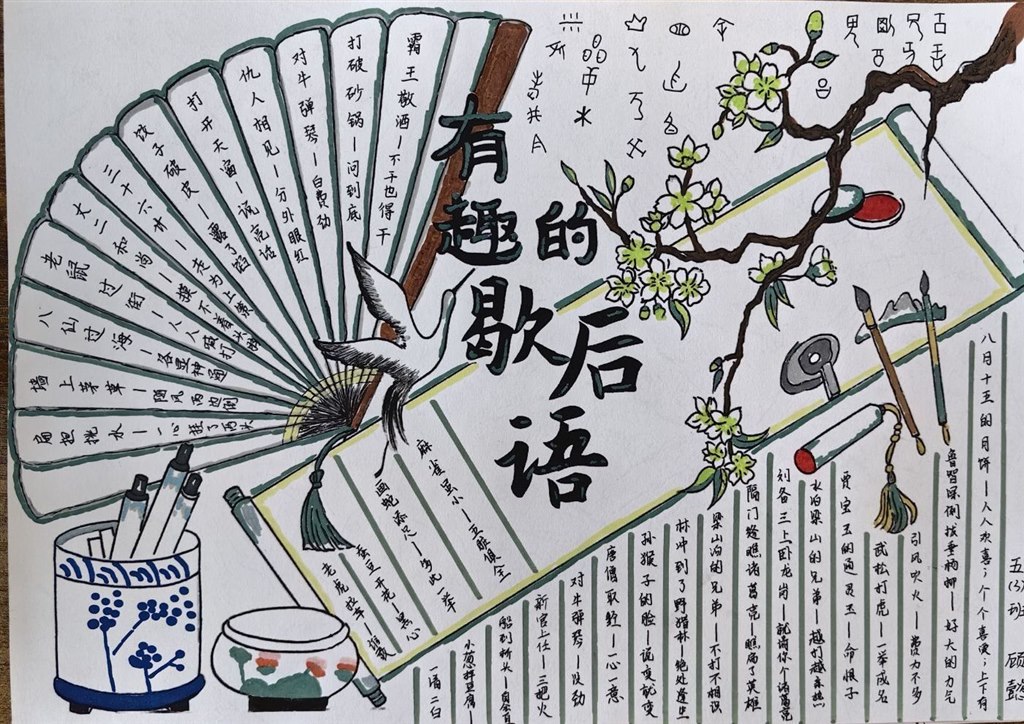 有趣的歇后语
霸王敬酒—不干也得干
打破砂锅—问到底
对牛弹琴—白费劲
仇人相见—分外眼红
打开天窗—说亮话
饺子破皮—露了馅
三十六计—走为上策
丈二和尚—摸不着头脑
老鼠过街—人人喊打
八仙过海—各显神通
墙上茅草—随风两边倒
肩担挑水—一心挂了两头
麻雀虽小—五脏俱全
画蛇添足—多此一举
蚕豆开花—黑心
八月十五的月饼—人人欢喜;个个喜爱;上下有
鲁智深倒拔垂杨柳—好大的力气
引风吹火—费力不多
武松打虎—一举成名
贾宝玉的通灵玉—命根子
水泊梁山的兄弟—越打越亲热
刘备三上卧龙岗—就请你个诸葛亮
隔门缝瞧诸葛亮—瞧扁了英雄
梁山泊的兄弟—不打不相识
林冲到了野猪林—绝处逢生
孙猴子的脸—说变就变
唐僧取经—一心一意
对牛弹琴—没劲
新官上任—三把火
船到桥头—自会直
小葱拌豆腐—
一清二白
五(3)班 顾懿